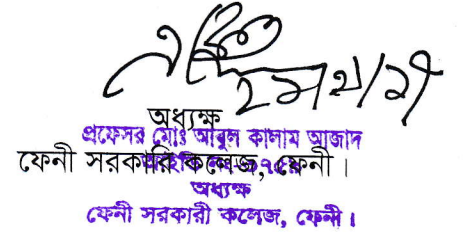 অধ্যক্ষ
প্রফেসর মোঃ আবুল কালাম আজাদ
ফেনী সরকারি কলেজ, ফেনী।
অধ্যক্ষ
ফেনী সরকারী কলেজ, ফেনী।